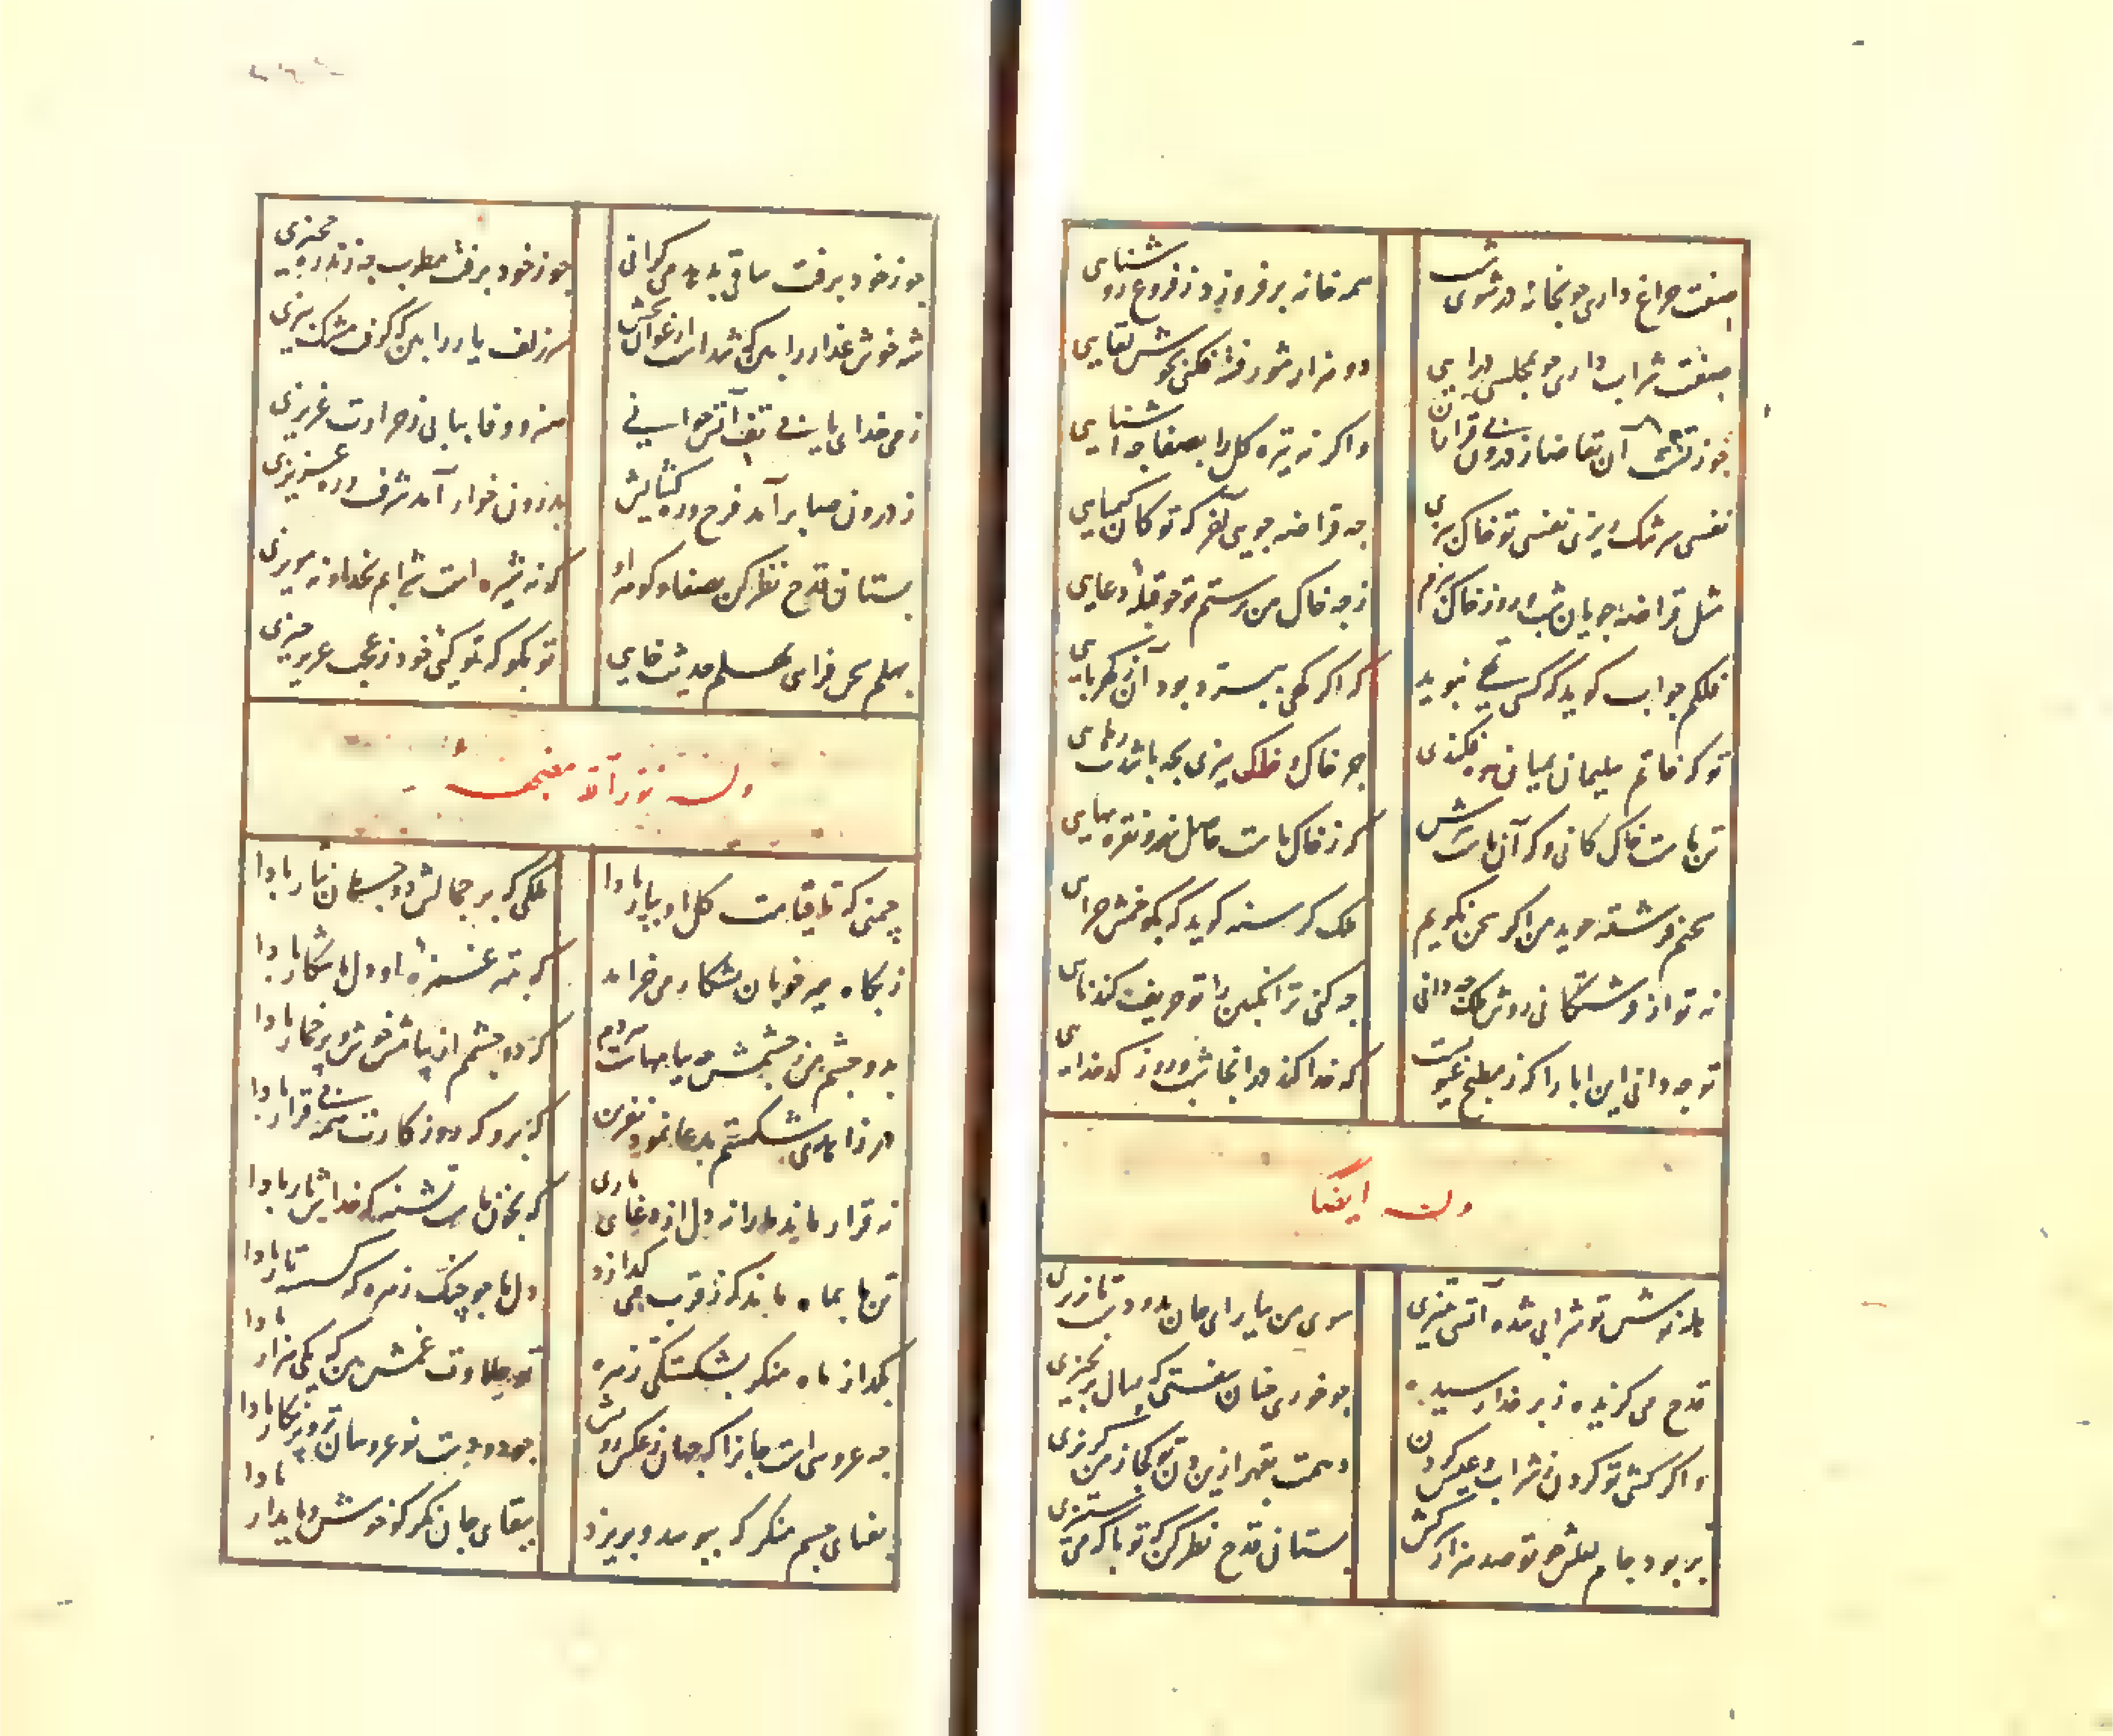 صفت چراغ داری چو بخانه در شوی شب همه خانه برفروزد ز فروغ روشنایی
صفت شراب داری چو بمجلسی درآیی دو هزار شور و فتنه فکنی بخوش لقایی
نفسی سرشک ریزی نفسی تو خاک بیزی چه قراضه جویی آخر که تو کان کیمیایی
مثل قراضه جویان شب و روز خاک بیزم ز چه خاک من پرستم تو قبله دعایی
فلکم جواب گوید که کسی تهی نپوید که اگر کهی بپرد بود آن ز کهربایی
تو که خاتم سلیمان بمیان ره فکندی جز خاک و خاک بیزی بچه باشدت رهایی
تن ماست خاک کانی و که آن ماست که ز خاک ماست حاصل زر و نقره بهایی
سخنم فرشته جوید من اگر سخن نگویم ملک گرسنه گوید که بگو خمش چرایی
نه تو از فرشتگانی روش ملک چه دانی چه کنی ترانگبین را تو حریف گندنایی
تو چه دانی این ابا را که ز مطبخ غیوبست که خدا کند در آنجا شب و روز کدخدایی
وله ایضا
هله نوش تو شرابی شده آتشی بتیزی سوی من بیا برای جان بدو دست تا نریزی
قدح می گزیده ز بر خدا رسیده چو خوری چنان بیفتی که بسال بر نخیزی
و اگر کشی تو گردن ز شراب و عیش کردن دهمت بقهر ازین و تو کجا ز من گریزی
بربود جام لعلش چو تو صد هزار سرکش بستان قدح نظر کن که تو با که می ستیزی
چو ز خود برفت ساقی بدهد می گرانی چو ز خود برفت مطرب بزند ره محیزی
شه خوش عذار را بین که شداست ارغوان بخش سر زلف یار را بین که گرفت مشک بیزی
ز می خدای یابی تف آتش جوانی هنر و وفا بیابی ز حرارت غریزی
ز درون صبا برآمد فرح و ره گشایش بدرون خوار آمد شرف و ره عزیزی
بستان قدح نظر کن بصفا و گوهر او که نه شیره است شراعم بخدا و نه مویزی
بهلم سخن فزایی بهلم حدیث خایی تو بگو که تو کنی خود ز عجب عرب حیزی
وله نور الله مضجعه
چمنی که تا قیامت گل او ببار بادا ملکی که بر جمالش دو جهان نثار بادا
ز پگاه میر خوبان بشکار می خرامد که بتیر غمزه او دل ما شکار بادا
بدو چشم من ز چشمش چه پیامهاست هر دم که دو چشم از پیامش خوش و پر خمار بادا
در زاهدی شکستم بدعا نمود نفرین که برو که روزگارت همه بی قرار بادا
نه قرار ماند ما را نه دل از دعای یاری که بخون ماست تشنه که خداش یار بادا
تن ما بماه ماند که ز قرب می گدازد دل ما چو چنگ زهره که گسسته تار بادا
بگداز ماه منگر بشکستگی زهره تو حلاوت غمش بین که یکی هزار بادا
چه عروسی است جان را که جهان ز عکس رویش چو دو دست نوعروسان تر و پر نگار بادا
بعنای جسم منگر که بپوسد و بریزد ببقای جان نگر کو خوش و پایدار بادا